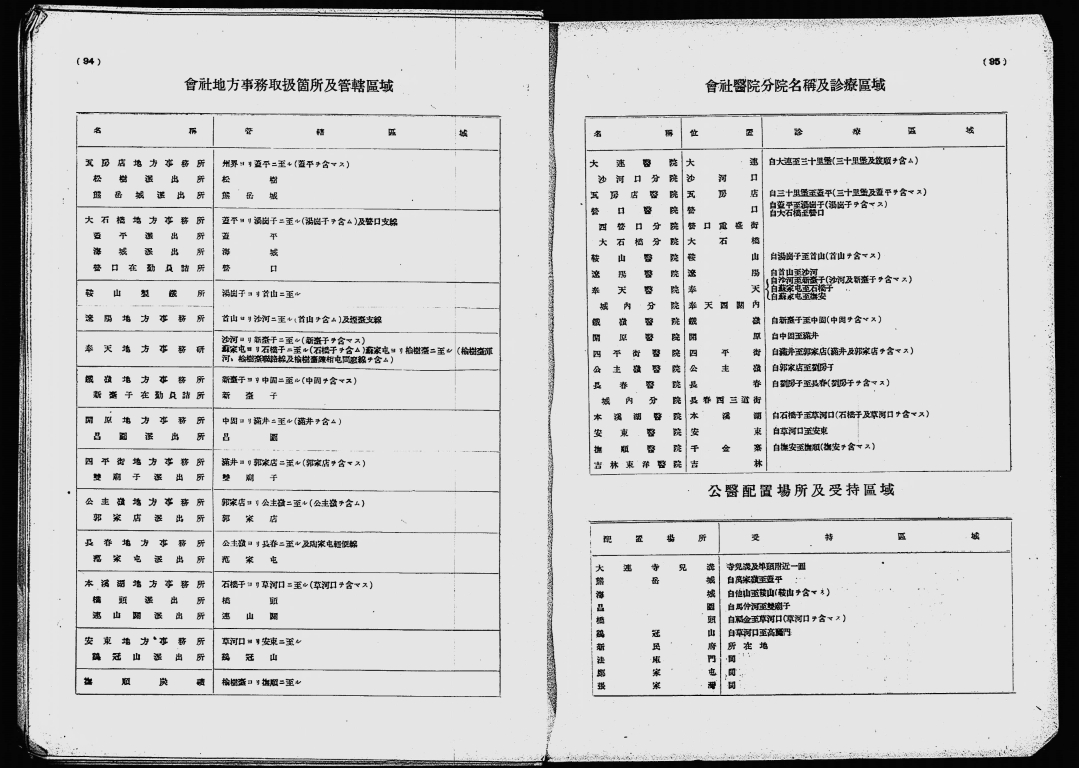 (94)
會社地方事務取扱箇所及管轄區域
名稱 管轄區域
瓦房店地方事務所 州界ヨリ蓋平ニ至ル(蓋平ヲ含マス)
松樹派出所 松樹
熊岳城派出所 熊岳城
大石橋地方事務所 蓋平ヨリ湯崗子ニ至ル(湯崗子ヲ含ム)及營口支線
蓋平派出所 蓋平
海城派出所 海城
營口在勤員詰所 營口
鞍山製鐵所 湯崗子ヨリ首山ニ至ル
遼陽地方事務所 首山ヨリ沙河ニ至ル(首山ヲ含ム)及煙臺支線
奉天地方事務所 沙河ヨリ新臺子ニ至ル(新臺子ヲ含マス)
蘇家屯ヨリ石橋子ニ至ル(石橋子ヲ含ム)蘇家屯ヨリ楡樹臺ニ至ル(楡樹臺渾
河、楡樹臺聯絡線及楡樹臺
鐵嶺地方事務所 新臺子ヨリ中固ニ至ル(中固ヲ含マス)
新臺子在勤員詰所 新臺子
開原地方事務所 中固ヨリ滿井ニ至ル(滿井ヲ含ム)
昌圖派出所 昌圖
四平街地方事務所 滿井ヨリ郭家店ニ至ル(郭家店ヲ含マス)
雙廟子派出所 雙廟子
公主嶺地方事務所 郭家店ヨリ公主嶺ニ至ル(公主嶺ヲ含ム)
郭家店派出所 郭家店
長春地方事務所 公主嶺ヨリ長春ニ至ル及陶家屯輕便線
范家屯派出所 范家屯
本溪湖地方事務所 石橋子ヨリ草河口ニ至ル(草河口ヲ含マス)
橋頭派出所 橋頭
連山關派出所 連山關
安東地方事務所 草河口ヨリ安東ニ至ル
鷄冠山派出所 鷄冠山
撫順炭礦 楡樹臺ヨリ撫順ニ至ル
(95)
會社醫院分院名稱及診療區域
名稱 位置 診療區域
大連醫院 大連 自大連至三十里堡(三十里堡及旅順ヲ含ム)
沙河口分院 沙河口
瓦房店醫院 瓦房店 自三十里堡至蓋平(三十里堡及蓋平ヲ含マス)
營口醫院 營口 自蓋平至湯崗子(湯崗子ヲ含マス)
自大石橋至營口
西營口分院 營口電盛街
大石橋分院 大石橋
鞍山醫院 鞍山 自湯崗子至首山(首山ヲ含マス)
遼陽醫院 遼陽 自首山至沙河
奉天醫院 奉天 自沙河至新臺子(沙河及新臺子ヲ含マス)
自蘇家屯至石橋子
自蘇家屯至撫安
城內分院 奉天西關內
鐵嶺醫院 鐵嶺 自新臺子至中固(中固ヲ含マス)
開原醫院 開原 自中固至滿井
四平街醫院 四平街 自滿井至郭家店(滿井及郭家店ヲ含マス)
公主嶺醫院 公主嶺 自郭家店至劉房子
長春醫院 長春 自劉房子至長春(劉房子ヲ含マス)
城內分院 長春西三道街
本溪湖醫院 本溪湖 自石橋子至草河口(石橋子及草河口ヲ含マス)
安東醫院 安東 自草河口至安東
撫順醫院 千金寨 自撫安至撫順(撫安ヲ含マス)
吉林東洋醫院 吉林
公醫配置場所及受持區域
配置場所 受持區域
大連寺兒溝 寺兒溝及埠頭附近一圓
熊岳城 自萬家嶺至蓋平
海城 自他山至鞍山(鞍山ヲ含マス)
昌圖 自馬仲河至雙廟子
橋頭 自福金至草河口(草河口ヲ含マス)
鷄冠山 自草河口至高麗門
新民府 所在地
法庫門 同
鄭家屯 同
張家灣 同